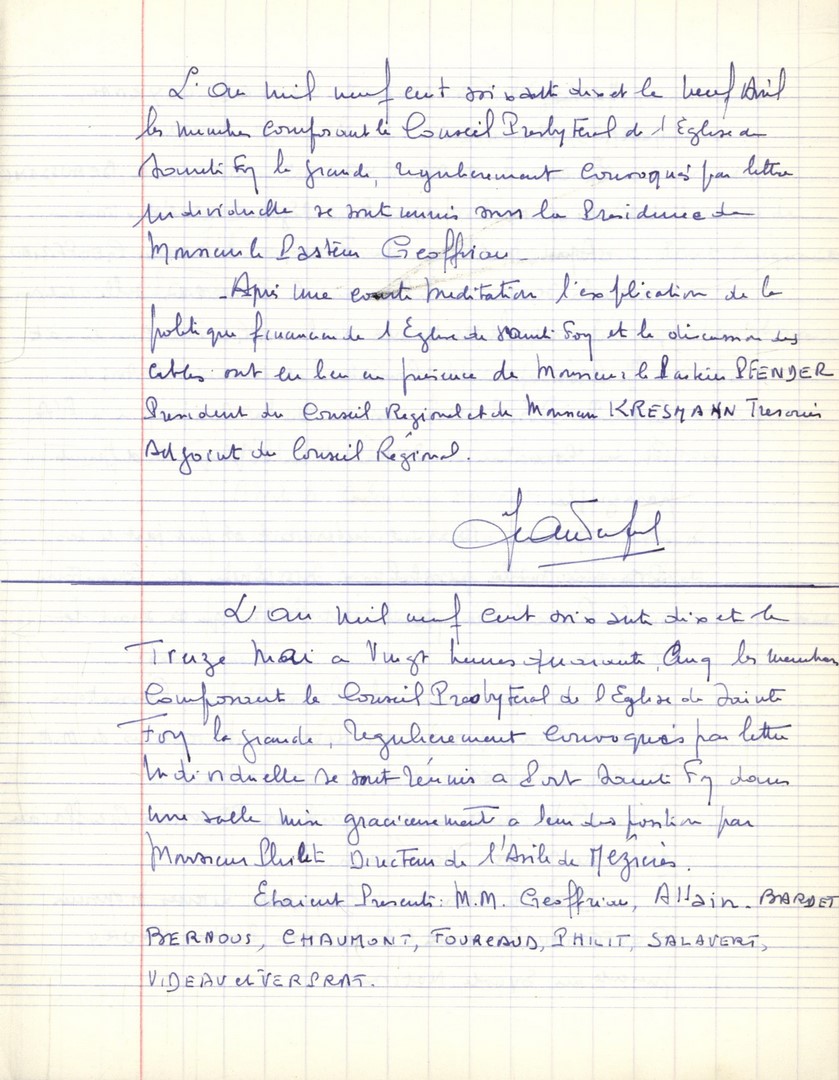 L'an mil neuf cent soixante dix et le neuf Avril
les membres composant le Conseil Presbyteral de l'Eglise de
Sainte Foy la grande, regulierement convoqués par lettre
individuelle se sont reunis sous la Presidence de
Monsieur le Pasteur Geoffriau_
_Après une courte meditation l'explication de la
politique financiere de l'Eglise de Sainte Foy et la discussion des
cibles ont eu lieu en presence de Monsieur le Pasteur PFENDER
President du Conseil Regional et de Monsieur KRESMANN Tresorier
Adjoint du Conseil Régional.
L'an mil neuf cent soixante dix et le
Treize Mai a Vingt heures quarante Cinq les membres
Composant le Conseil Presbyteral de l'Eglise de Sainte
Foy la grande, regulierement convoqués par lettre
individuelle se sont réunis a Port Sainte Foy dans
une salle mise gracieusement a leur disposition par
Monsieur Philit Directeur de l'Asile de Mézières.
Etaient Presents: M.M. Geoffriau, Allain. BARDET
BERNOUS, CHAUMONT, FOURCAUD, PHILIT, SALAVERT,
VIDEAU et VERPRAT.